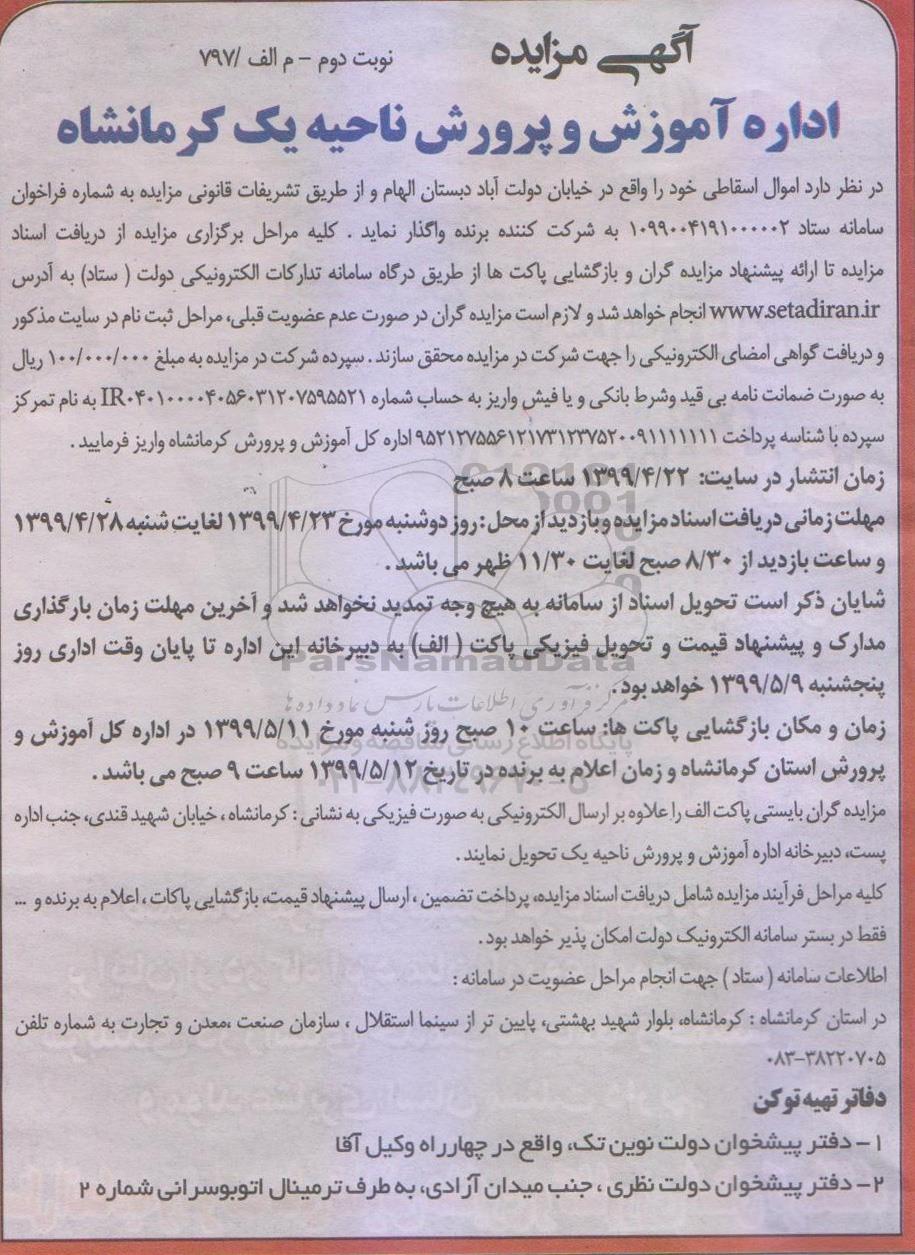 آگهی مزایده
نوبت دوم - م الف /۷۹۷
اداره آموزش و پرورش ناحیه یک کرمانشاه
در نظر دارد اموال اسقاطی خود را واقع در خیابان دولت آباد دبستان الهام و از طریق تشریفات قانونی مزایده به شماره فراخوان
سامانه ستاد ۱۰۹۹۰۰۴۱۹۱۰۰۰۰۰۲ به شرکت کننده برنده واگذار نماید . کلیه مراحل برگزاری مزایده از دریافت اسناد
مزایده تا ارائه پیشنهاد مزایده گران و بازگشایی پاکت ها از طریق درگاه سامانه تدارکات الکترونیکی دولت ( ستاد) به آدرس
www.setadiran.ir انجام خواهد شد و لازم است مزایده گران در صورت عدم عضویت قبلی، مراحل ثبت نام در سایت مذکور
و دریافت گواهی امضای الکترونیکی را جهت شرکت در مزایده محقق سازند . سپرده شرکت در مزایده به مبلغ ۱۰۰/۰۰۰/۰۰۰ ریال
به صورت ضمانت نامه بی قید وشرط بانکی و یا فیش واریز به حساب شماره IR۰۴۰۱۰۰۰۰۴۰۵۶۰۳۱۲۰۷۵۹۵۵۲۱ به نام تمرکز
سپرده با شناسه پرداخت ۹۵۲۱۲۷۵۵۶۱۲۱۷۳۱۲۳۷۵۲۰۰۹۱۱۱۱۱۱۱ اداره کل آموزش و پرورش کرمانشاه واریز فرمایید .
زمان انتشار در سایت: ۱۳۹۹/۴/۲۲ ساعت ۸ صبح
مهلت زمانی دریافت اسناد مزایده و بازدید از محل : روز دوشنبه مورخ ۱۳۹۹/۴/۲۳ لغایت شنبه ۱۳۹۹/۴/۲۸
و ساعت بازدید از ۸/۳۰ صبح لغایت ۱۱/۳۰ ظهر می باشد .
شایان ذکر است تحویل اسناد از سامانه به هیچ وجه تمدید نخواهد شد و آخرین مهلت زمان بارگذاری
مدارک و پیشنهاد قیمت و تحویل فیزیکی پاکت ( الف) به دبیرخانه این اداره تا پایان وقت اداری روز
ParsNamadData
پنجشنبه ۱۳۹۹/۵/۹ خواهد بود .
مرکز فرآوری اطلاعات پارس نماد داده ها
زمان و مکان بازگشایی پاکت ها: ساعت ۱۰ صبح روز شنبه مورخ ۱۳۹۹/۵/۱۱ در اداره کل آموزش و
پایگاه اطلاع رسانی مناقصه و مزایده
پرورش استان کرمانشاه و زمان اعلام به برنده در تاریخ ۱۳۹۹/۵/۱۲ ساعت ۹ صبح می باشد .
مزایده گران بایستی پاکت الف را علاوه بر ارسال الکترونیکی به صورت فیزیکی به نشانی : کرمانشاه ، خیابان شهید قندی، جنب اداره
پست، دبیرخانه اداره آموزش و پرورش ناحیه یک تحویل نمایند .
کلیه مراحل فرآیند مزایده شامل دریافت اسناد مزایده، پرداخت تضمین ، ارسال پیشنهاد قیمت، بازگشایی پاکات ، اعلام به برنده و ...
فقط در بستر سامانه الکترونیک دولت امکان پذیر خواهد بود .
اطلاعات سامانه ( ستاد ) جهت انجام مراحل عضویت در سامانه :
در استان کرمانشاه : کرمانشاه، بلوار شهید بهشتی، پایین تر از سینما استقلال ، سازمان صنعت ،معدن و تجارت به شماره تلفن
۰۸۳-۳۸۲۲۰۷۰۵
دفاتر تهیه توکن
۱ - دفتر پیشخوان دولت نوین تک، واقع در چهارراه وکیل آقا
۲- دفتر پیشخوان دولت نظری ، جنب میدان آزادی، به طرف ترمینال اتوبوسرانی شماره ۲